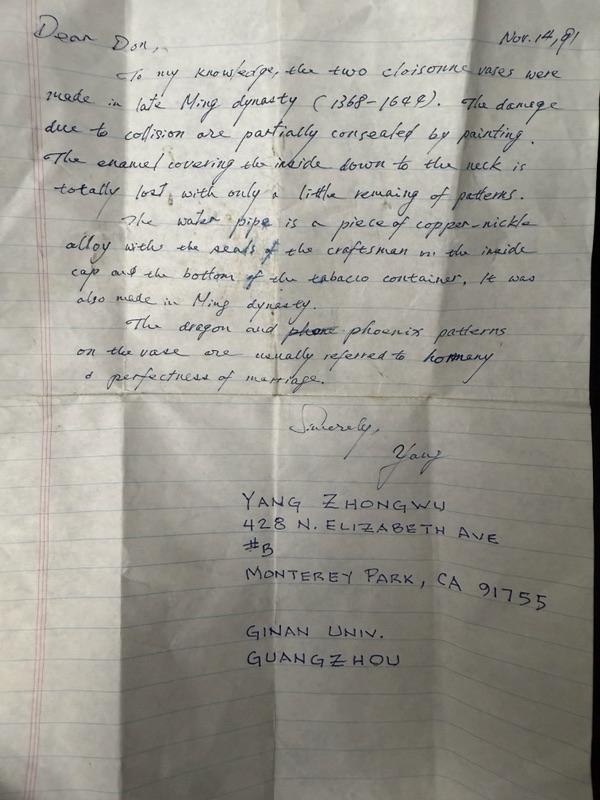 Dear Don,
Nov. 14, 91
To my knowledge, the two cloisonne vases were
made in late Ming dynasty (1368-1644). The damage
due to collision are partially consealed by painting.
The enamel covering the inside down to the neck is
totally lost with only a little remaing of patterns.
The water pipe is a piece of copper-nickle
alloy with the seals of the craftsman in the inside
cap and the bottom of the tabacco container. It was
also made in Ming dynasty.
The dragon and phone phoenix patterns
on the vase are usually referred to hormany
& perfectness of marriage.
Sincerely,
Yang
YANG ZHONGWU
428 N. ELIZABETH AVE
#B
MONTEREY PARK, CA 91755
GINAN UNIV.
GUANGZHOU